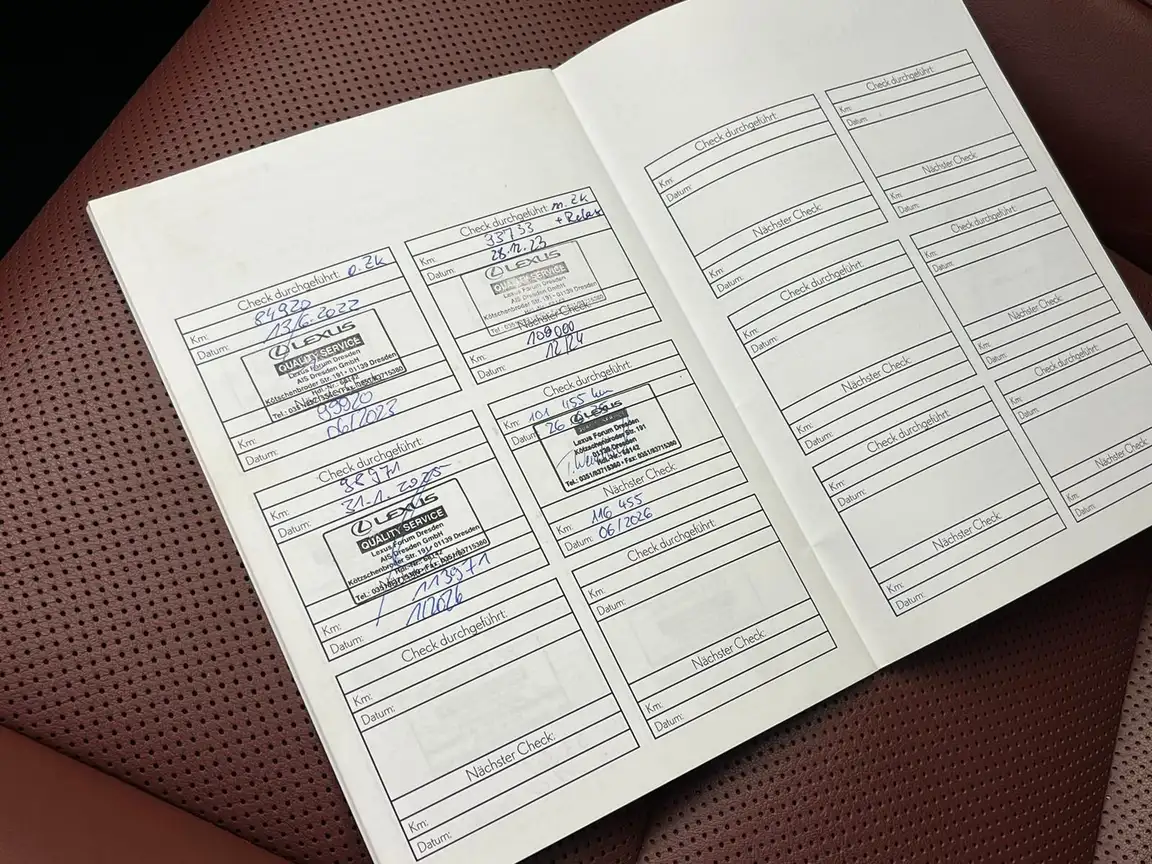 Check durchgeführt: o. ZK
Km: 84920
Datum: 13/6.2022
LEXUS
QUALITY SERVICE
Lexus Forum Dresden
AIS Dresden GmbH
Kötzschenbroder Str. 191 • 01139 Dresden
Hdl.-Nr.: 68142
Km: 99920
Datum: 06/2023
Check durchgeführt: m. ZK
+ Relax
Km:
Datum: 28.12.23
LEXUS
QUALITY SERVICE
Lexus Forum Dresden
AIS Dresden GmbH
Kötzschenbroder Str. 191 • 01139 Dresden
Nächster Check:
Km: 109000
Datum: 12/24
Check durchgeführt:
Km: 98971
Datum: 21.1.2025
LEXUS
QUALITY SERVICE
Lexus Forum Dresden
AIS Dresden GmbH
Kötzschenbroder Str. 191 • 01139 Dresden
Hdl.-Nr.: 68142
Tel.: 0351/83715360 • Fax: 0351/83715380
Km: 113971
Datum: 1/2026
Check durchgeführt:
Km: 101 455 km
Datum: 26
LEXUS
Lexus Forum Dresden
Kötzschenbroder Str. 191
01139 Dresden
Hdl.-Nr.: 68142
Tel.: 0351/83715360 • Fax: 0351/83715380
Nächster Check:
Km: 116 455
Datum: 06/2026
Check durchgeführt:
Km:
Datum:
Nächster Check:
Km:
Datum:
Check durchgeführt:
Km:
Datum:
Nächster Check:
Km:
Datum:
Check durchgeführt:
Km:
Datum:
Nächster Check:
Km:
Datum:
Check durchgeführt:
Km:
Datum:
Nächster Check:
Km:
Datum:
Check durchgeführt:
Km:
Datum:
Nächster Check:
Km:
Datum:
Check durchgeführt:
Km:
Datum:
Nächster Check:
Km:
Datum:
Check durchgeführt:
Km:
Datum:
Nächster Check:
Km:
Datum:
Check durchgeführt:
Km:
Datum:
Nächster Check:
Km:
Datum: